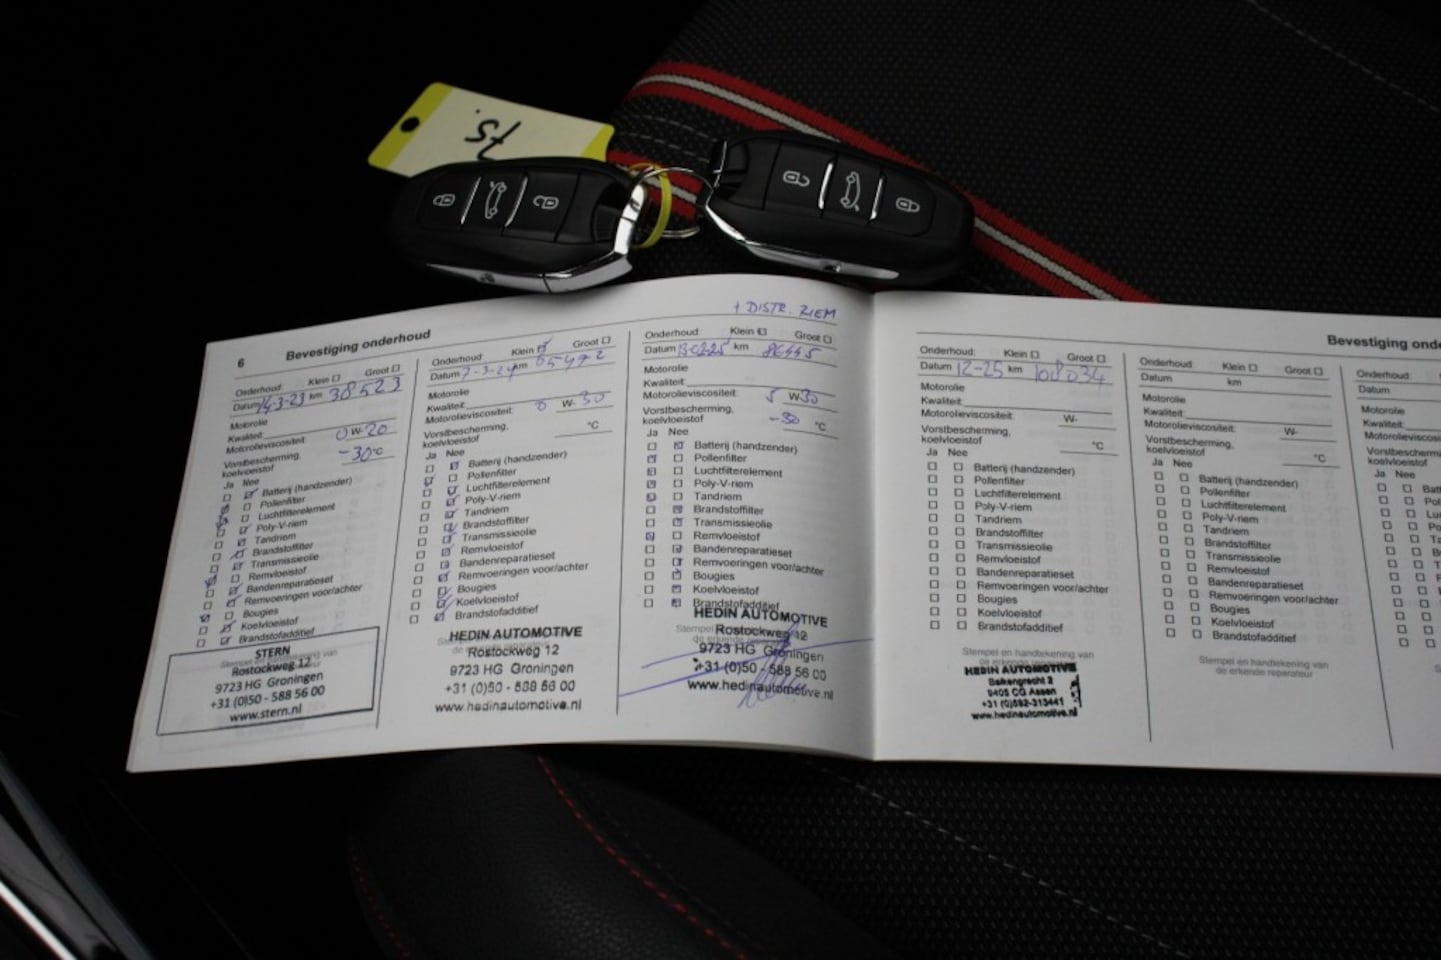 fs.
6 Bevestiging onderhoud
Onderhoud: Klein ☐ Groot ☐
Datum 14-3-23 km 38523
Motorolie
Kwaliteit:
Motorolieviscositeit: 0 W-20
Vorstbescherming,
koelvloeistof -30°C
Ja Nee
Batterij (handzender)
Pollenfilter
Luchtfilterelement
Poly-V-riem
Tandriem
Brandstoffilter
Transmissieolie
Remvloeistof
Bandenreparatieset
Remvoeringen voor/achter
Bougies
Koelvloeistof
Brandstofadditief
Stempel en handtekening van
STERN
Rostockweg 12
9723 HG Groningen
+31 (0)50 - 588 56 00
www.stern.nl
Onderhoud: Klein Groot ☐
Datum 7-3-24 km 65492
Motorolie
Kwaliteit:
Motorolieviscositeit: 0 W-30
Vorstbescherming,
koelvloeistof °C
Ja Nee
Batterij (handzender)
Pollenfilter
Luchtfilterelement
Poly-V-riem
Tandriem
Brandstoffilter
Transmissieolie
Remvloeistof
Bandenreparatieset
Remvoeringen voor/achter
Bougies
Koelvloeistof
Brandstofadditief
HEDIN AUTOMOTIVE
Rostockweg 12
9723 HG Groningen
+31 (0)50 - 588 56 00
www.hedinautomotive.nl
+ DISTR. RIEM
Onderhoud: Klein Groot ☐
Datum km
Motorolie
Kwaliteit:
Motorolieviscositeit: 5 W30
Vorstbescherming,
koelvloeistof -30 °C
Ja Nee
Batterij (handzender)
Pollenfilter
Luchtfilterelement
Poly-V-riem
Tandriem
Brandstoffilter
Transmissieolie
Remvloeistof
Bandenreparatieset
Remvoeringen voor/achter
Bougies
Koelvloeistof
Brandstofadditief
HEDIN AUTOMOTIVE
Rostockweg 12
de erkende reparateur
9723 HG Groningen
+31 (0)50 - 588 56 00
www.hedinautomotive.nl
Bevestiging onde
Onderhoud: Klein ☐ Groot ☐
Datum 12-25 km 108034
Motorolie
Kwaliteit:
Motorolieviscositeit: W-
Vorstbescherming,
koelvloeistof °C
Ja Nee
Batterij (handzender)
Pollenfilter
Luchtfilterelement
Poly-V-riem
Tandriem
Brandstoffilter
Transmissieolie
Remvloeistof
Bandenreparatieset
Remvoeringen voor/achter
Bougies
Koelvloeistof
Brandstofadditief
Stempel en handtekening van
de erkende reparateur
HEDIN AUTOMOTIVE
Balkengracht 2
9405 CG Assen
+31 (0)592-313441
www.hedinautomotive.nl
Onderhoud: Klein ☐ Groot ☐
Datum km
Motorolie
Kwaliteit:
Motorolieviscositeit: W-
Vorstbescherming,
koelvloeistof °C
Ja Nee
Batterij (handzender)
Pollenfilter
Luchtfilterelement
Poly-V-riem
Tandriem
Brandstoffilter
Transmissieolie
Remvloeistof
Bandenreparatieset
Remvoeringen voor/achter
Bougies
Koelvloeistof
Brandstofadditief
Stempel en handtekening van
de erkende reparateur
Onderhoud:
Datum
Motorolie
Kwaliteit:
Motorolieviscosi
Vorstbescherming,
koelvloeistof
Ja Nee